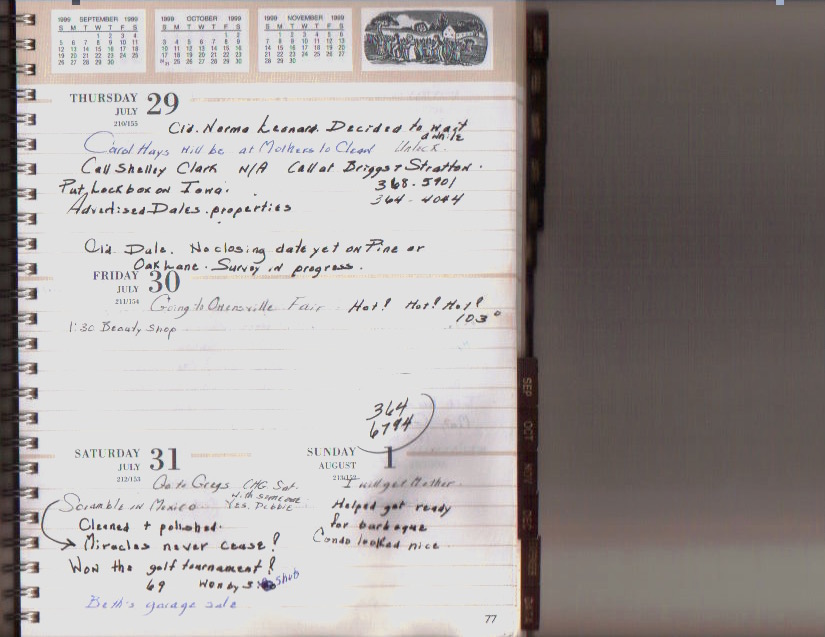 1999 SEPTEMBER 1999
S M T W T F S
1 2 3 4
5 6 7 8 9 10 11
12 13 14 15 16 17 18
19 20 21 22 23 24 25
26 27 28 29 30
1999 OCTOBER 1999
S M T W T F S
1 2
3 4 5 6 7 8 9
10 11 12 13 14 15 16
17 18 19 20 21 22 23
24 25 26 27 28 29 30
31
1999 NOVEMBER 1999
S M T W T F S
1 2 3 4 5 6
7 8 9 10 11 12 13
14 15 16 17 18 19 20
21 22 23 24 25 26 27
28 29 30
THURSDAY 29
JULY
210/155
Cld. Norma Leonard. Decided to wait
awhile
Carol Hays will be at Mothers to Clean Unlock.
Call Shelley Clark N/A Call at Briggs & Stratton.
Put Lockbox on Iowa. 368-5901
364-4044
Advertised Dales. properties
Cld. Dale. No closing date yet on Pine or
Oak Lane. Survey in progress.
FRIDAY 30
JULY
211/154
Going to Owensville Fair Hot! Hot! Hot!
103°
1:30 Beauty Shop
364
6794
SATURDAY 31
JULY
212/153
Go to Gregs CMG Sat.
with someone
Yes. Debbie
Scramble in Mexico
Cleaned + polished.
Miracles never cease!
Won the golf tournament!
69 Won by 3
Beth's garage sale
SUNDAY 1
AUGUST
213/152
I will get Mother.
Helped get ready
for barbeque
Condo looked nice.
77
SEP
OCT
NOV
DEC